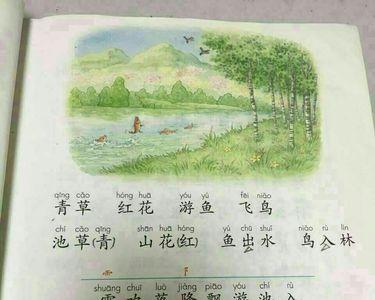 qīng cǎo hóng huā yóu yú fēi niǎo
青草 红花 游鱼 飞鸟
chí cǎo shān huā yú chū shuǐ niǎo rù lín
池草(青) 山花(红) 鱼出水 鸟入林
shuāng chuī luò jiàng piāo yóu chí
霜吹落降飘游池入